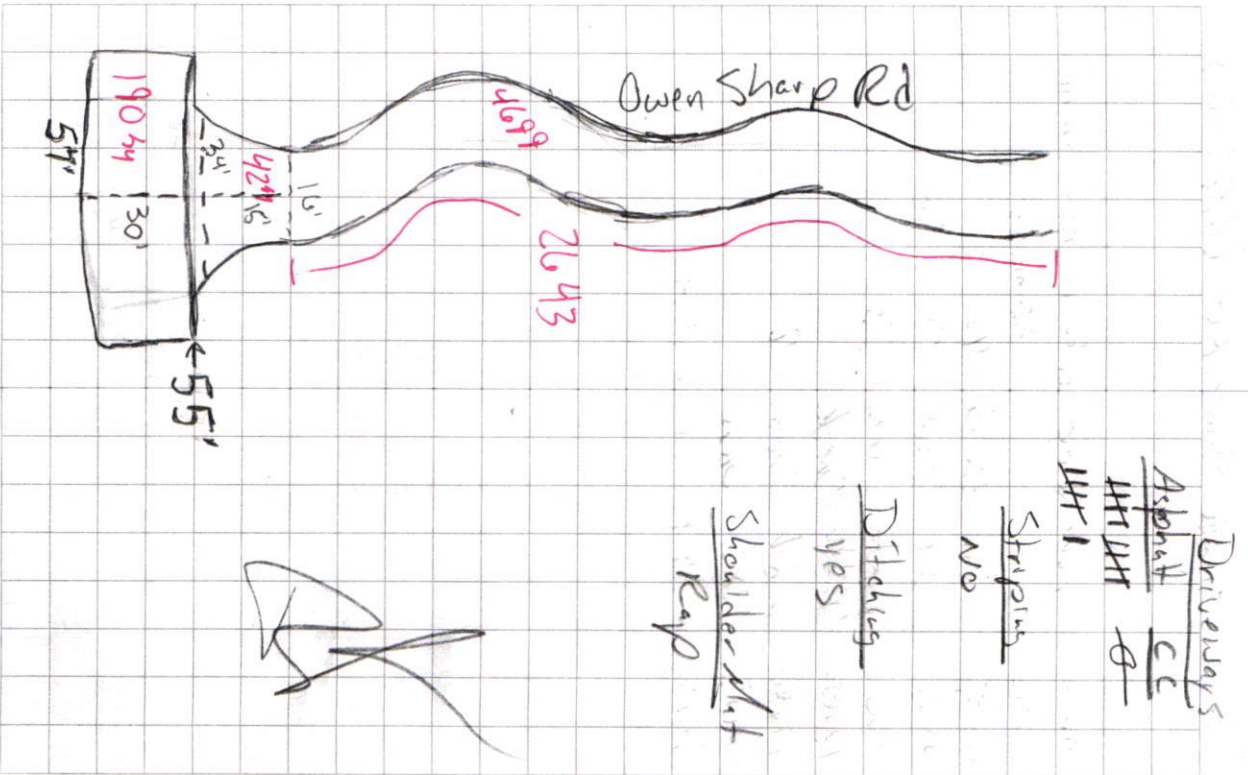 Owen Sharp Rd
4699
2643
190 yd
54'
30'
34'
42
16'
16'
←55'
Driveways
Asphalt CC
卌 卌 0
卌 I
Striping
No
Ditching
yes
Shoulder Mat
Rap